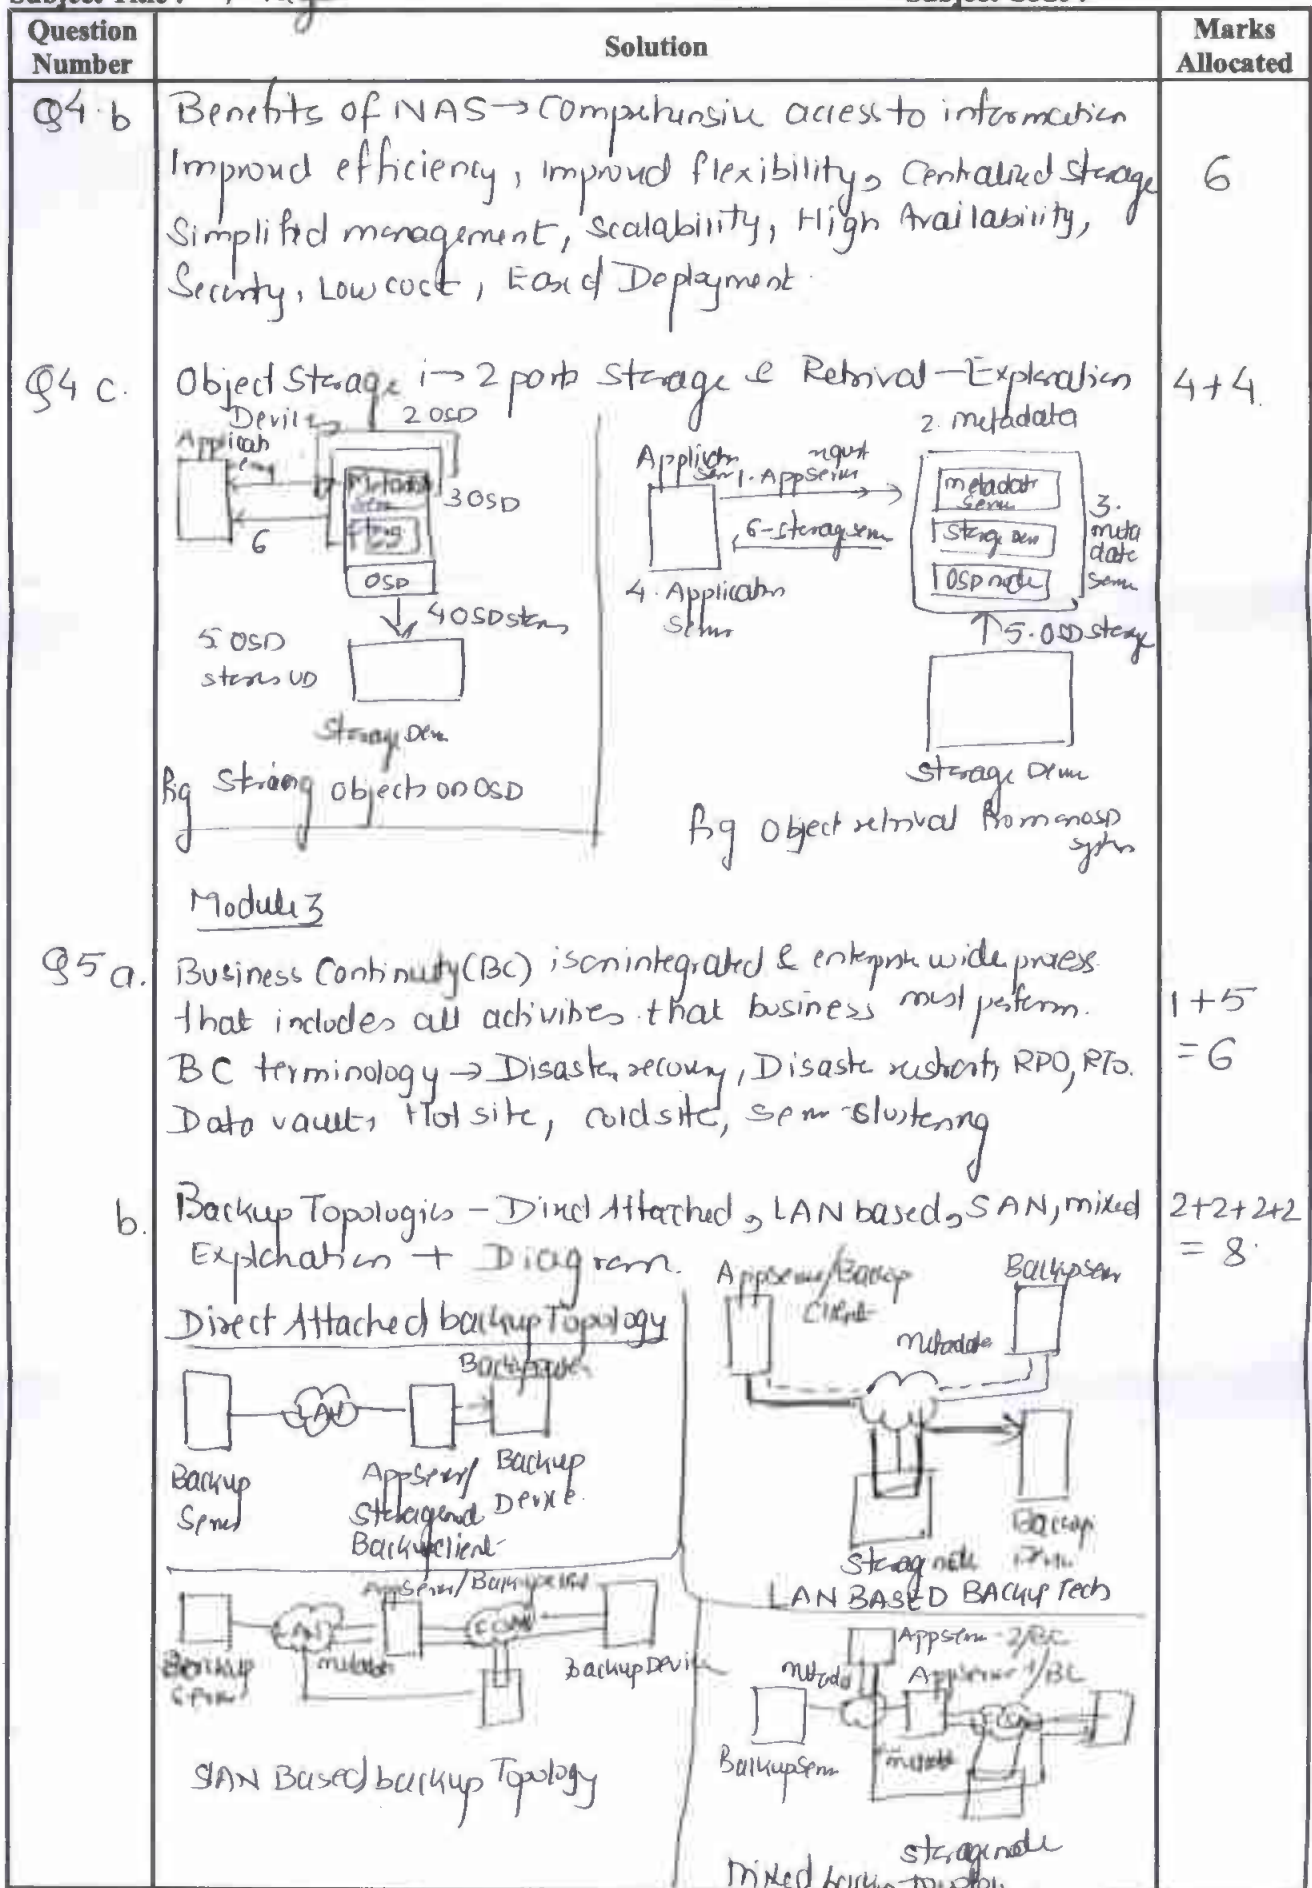 Question Number
Solution
Marks Allocated
Q4.b
Benefits of NAS → Comprehensive access to information
Improved efficiency, improved flexibility, Centralized storage
Simplified management, scalability, High Availability,
Security, Low cost, Ease of Deployment.
6
Q4 C.
Object Storage → 2 parts Storage & Retrival - Explanation
4+4.
Device
2 OSD
Applicatn
Metadata
3 OSD
6
OSD
4 OSD stores
5. OSD
stores UD
Storage Device
Fig Storing objects on OSD
2. metadata
Applicatn
Server 1. App Server request
6 - storage server
4. Application
Server
metadata
server
Storage Dev
OSD node
3.
meta
data
server
5. OSD storage
Storage Device
Fig Object retrival from an OSD
system
Module 3
Q5 a.
Business Continuity (BC) is an integrated & enterprise wide process
that includes all activities that business must perform.
BC terminology → Disaster recovery, Disaster restart, RPO, RTO.
Data vault, Hot site, cold site, server clustering
1+5
= 6
b.
Backup Topologies - Direct Attached, LAN based, SAN, mixed
Explanation + Diagram.
2+2+2+2
= 8.
Direct Attached backup Topology
LAN
Backup
Server
App Server/
Storage node
Backup client
Backup
Device
App server/Backup
Client
Backup server
metadata
Storage node
Backup
LAN BASED BACKUP Tech
App Server/Backup client
LAN
Backup
server
metadata
Backup Device
SAN Based backup Topology
App server-2/BC
metada
App server 1/BC
Backup server
metada
storage node
Mixed backup